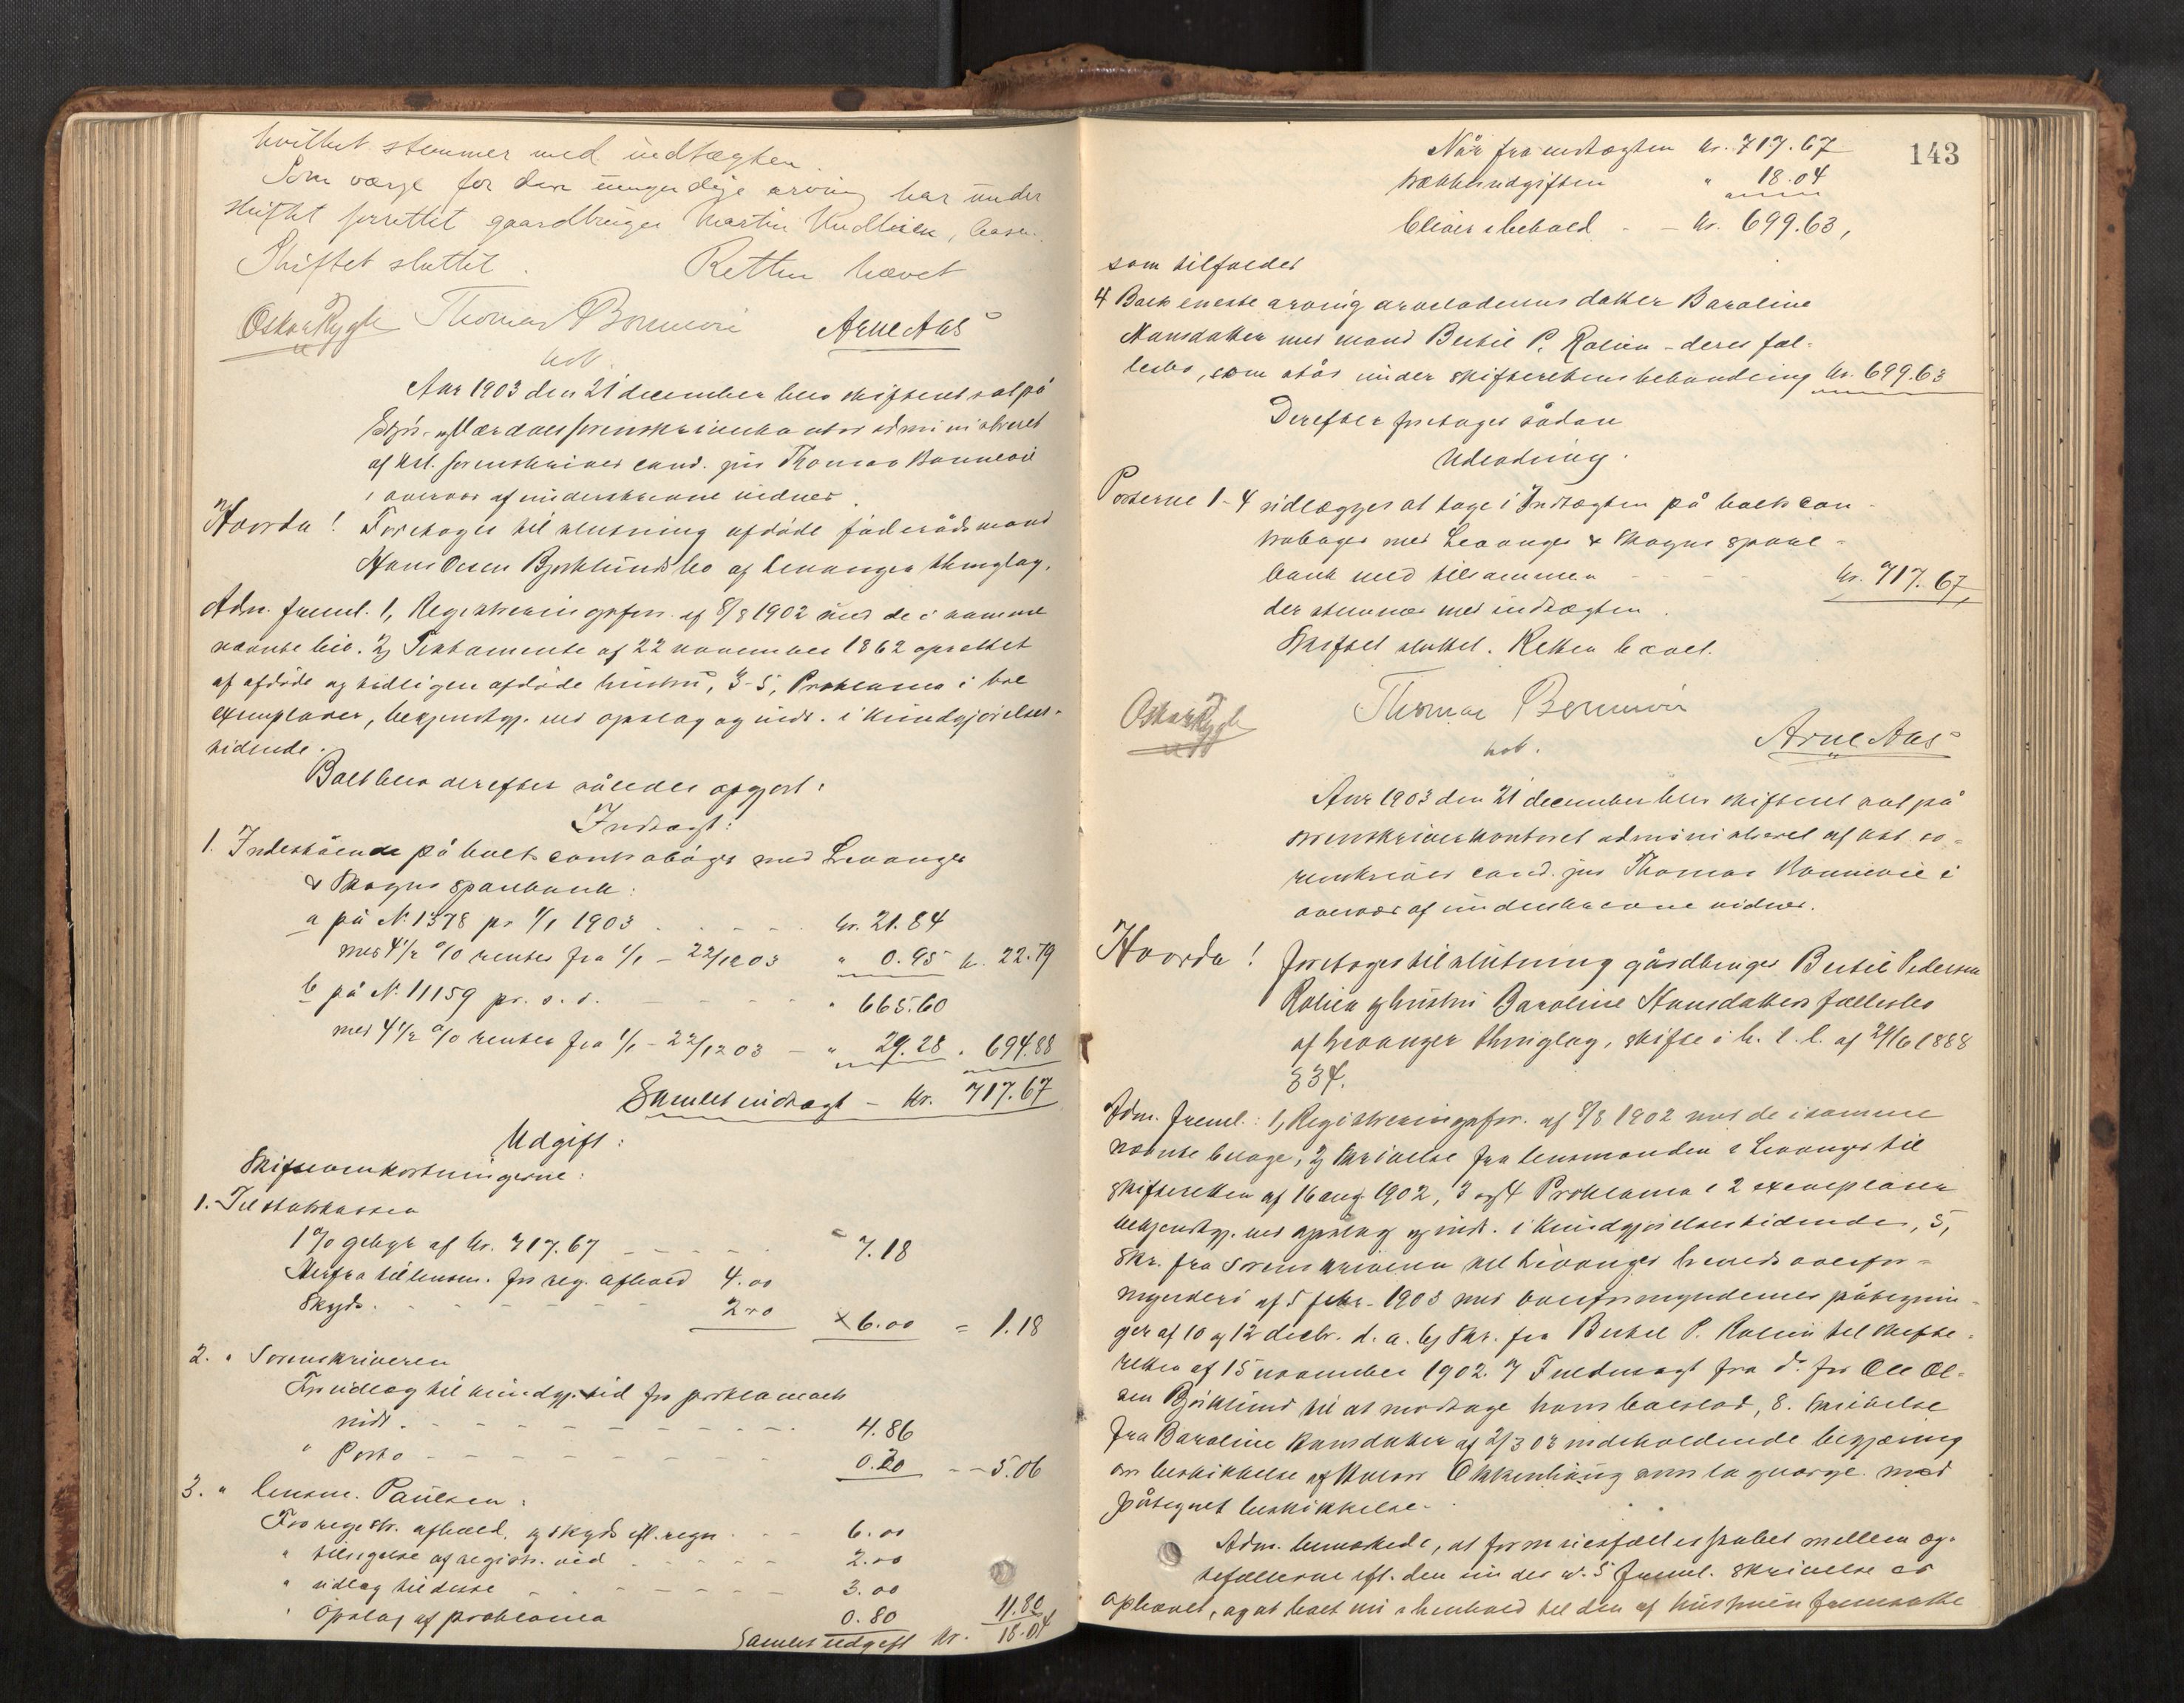 hvilket stemmer med indtægten
Som værge for den umyndige arving har under
skiftet forrettet gaardbruger Martin
Skiftet sluttet. Retten hævet
Oskar Rygh Thomas Bonnevie Arne Aas
kst.
Aar 1903 den 21 december blev skifteret sat på
Stjør- og Værdals sorenskriverkontor administreret
af kst. sorenskriver cand. jur Thomas Bonnevie
i overvær af underskrevne vidner.
Hvorda! Foretoges til slutning afdøde föderådsmand
Hans Olsen Bjørklunds bo af Levanger thinglag.
Adm. freml. 1, Registreringsforr. af 8/8 1902 med de i samme
nævnte bil. 2, Testamente af 22 november 1862 oprettet
af afdøde og tidligere afdøde hustru, 3-5, Proklama i tre
exemplarer, bekjendtgj. ved opslag og indr. i Kundgjörelses-
tidende.
Boet blev derefter således opgjort:
Indtægt:
1. Indestående på boets contrabøger med Levanger
& Skogns sparebank:
a på N. 1378 pr 1/1 1903 kr. 21.84
med 4½ % renter fra 1/1 - 22/12 03 " 0.95 kr. 22.79
b på N. 11159 pr. s. d. " 665.60
med 4½ % renter fra 1/1 - 22/12 03 - " 29.28 " 694.88
Samlet indtægt - Kr. 717.67
Udgift:
Skifteomkostningerne:
1. Til statskassen
1 % gebyr af kr. 717.67 7.18
Herfra til lensm. for reg. afhold 4.00
Skyds. 2.00 6.00 = 1.18
2. " Sorenskriveren
For udlæg til kundgj. tid for proklamaets
indr. 4.86
" Porto 0.20 - 5.06
3. " lensm. Paulsen:
For registr. afhold. og skyds efl. regn. 6.00
" tilsigelse af registr. vid 2.00
" udlæg til disse 3.00
" Opslag af proklama 0.80 11.80
Samlet udgift kr. 18.04
143
Når fra indtægten kr. 717.67
trækkes udgiften " 18.04
bliver i behold - - kr. 699.63,
som tilfalder
4 Boets eneste arving arveladerens datter Baroline
Hansdatter med mand Bertil P. Rolien - deres fæl-
lesbo, som står under skifterettens behandling kr. 699.63
Derefter foretoges sådan
Udlodning.
Posterne 1-4 udlægges at tage i Indtægten på boets con-
trabøger med Levanger & Skogns spare-
bank med tilsammen - - - kr. 717.67,
der stemmer med indtægten.
Skiftet sluttet. Retten hævet.
Oskar Rygh Thomas Bonnevie
kst. Arne Aas
Aar 1903 den 21 december blev skifteret sat på
sorenskriverkontoret administreret af kst. so-
renskriver cand. jur Thomas Bonnevie i
overvær af underskrevne vidner.
Hvorda! foretoges til slutning gårdbruger Bertil Pedersen
Rolien og hustru Baroline Hansdatters fællesbo
af Levanger thinglag, skifte i h. t. l. af 29/6 1888
§ 34.
Adm. freml.: 1, Registreringsforr. af 8/8 1902 med de i samme
nævnte bilage, 2, Skrivelse fra lensmanden i Levanger til
skifteretten af 16 aug 1902, 3 og 4 Proklama i 2 exemplarer
bekjendtgj. ved opslag og indr. i Kundgjörelsestidende, 5,
Skr. fra Sorenskriveren til Levanger herreds overfor-
mynderi af 5 febr. 1903 med overformyndernes påtegnin-
ger af 10 og 12 decbr. d. a. 6, Skr. fra Bertel P. Rolien til skifte-
retten af 15 november 1902. 7 Fuldmagt fra do. for Ole Ol-
sen Bjørklund til at modtage hans boeslod, 8. Skrivelse
fra Baroline Hansdatter af 2/3 03 indeholdende begjæring
om beskikkelse af Okkenhaug som lagværge med
påtegnet beskikkelse.
Adm. bemærkede, at formuesfællesskabet mellem æg-
tefællerne efl. den under n. 5 freml. skrivelse er
ophævet, og at boet nu i henhold til den af hustruen fremsatte